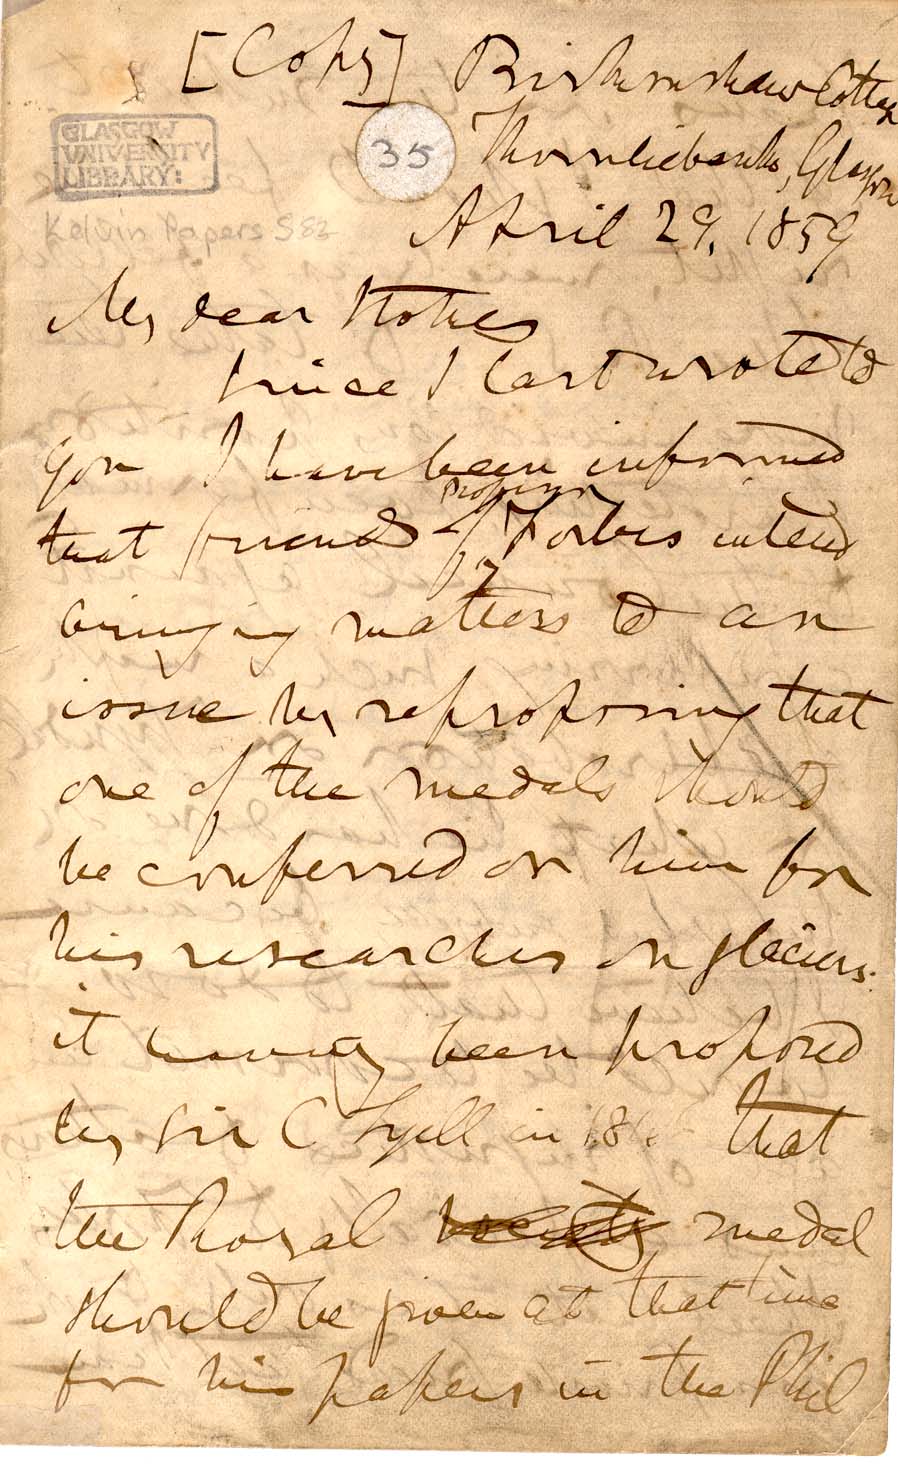 [Copy] Birkenshaw Cottage
GLASGOW
UNIVERSITY
LIBRARY:
35
Thornliebank, Glasgow
Kelvin Papers S 82
April 29, 1859
My dear Stokes
Since I last wrote to
you I have been informed
Professor
that friends of Forbes intend
bringing matters to an
issue by reproposing that
one of the medals should
be conferred on him for
his researches on glaciers:
it having been proposed
by Sir C Lyell in 184 that
the Royal Society medal
should be given at that time
for his papers in the Phil